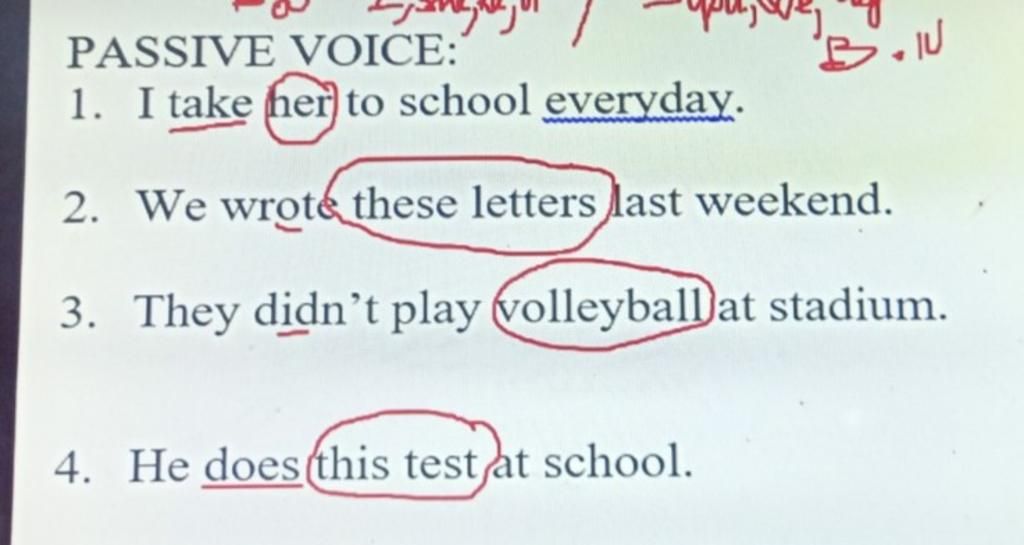 PASSIVE VOICE:
1. I take her to school everyday.
2. We wrote these letters last weekend.
3. They didn't play volleyball at stadium.
4. He does this test at school.